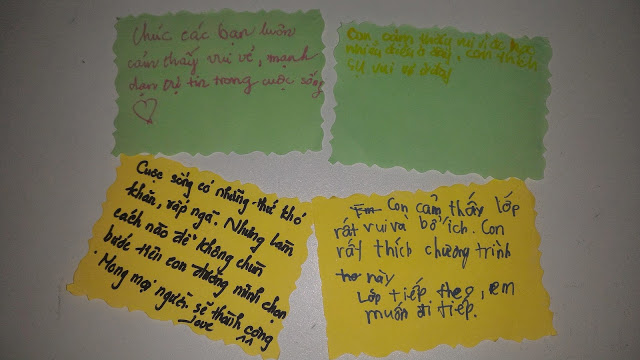 Chúc các bạn luôn
cảm thấy vui vẻ, mạnh
dạn tự tin trong cuộc sống
Con cảm thấy
nhiều điều ở đây, con thích
sự vui vẻ ở đây
Cuộc sống có những thứ khó
khăn, vấp ngã. Nhưng làm
cách nào đi không chùn
bước trên con đường mình chọn
. Mong mọi người sẽ thành công
Love ^^
Em Con cảm thấy lớp
rất vui và bổ ích. Con
rất thích chương trình
này
Lớp tiếp theo, em
muốn đi tiếp.